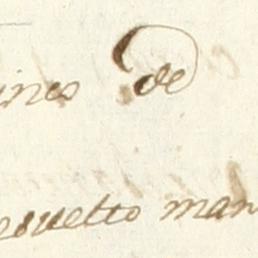 ines de
esuelto man